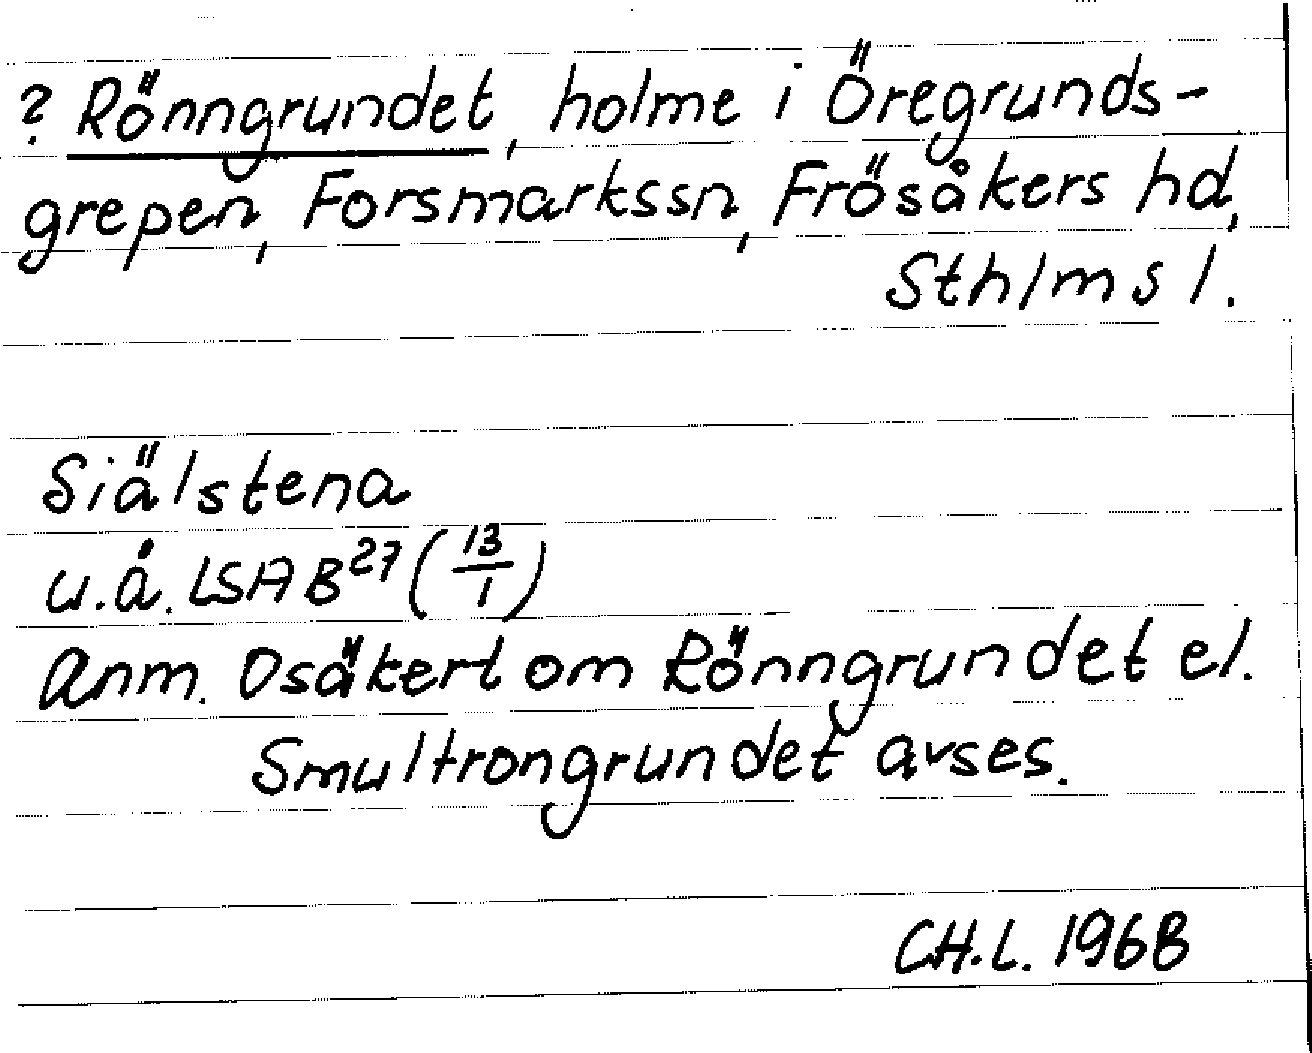 ? Rönngrundet, holme i Öregrunds-
grepen, Forsmarkssn, Frösåkers hd,
Sthlms l.
Siälstena
u.å. LSA B²⁷ (13/1)
Anm. Osäkert om Rönngrundet el.
Smultrongrundet avses.
CH.L. 1968